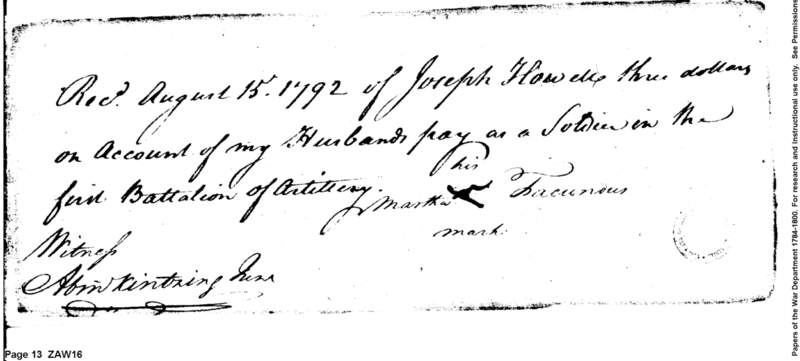 Rec'd. August 15. 1792 of Joseph Howell three dollars
on Account of my Husbands pay as a Soldier in the
first Battalion of Artillery.
his
Martha Facundus
mark.
Witness
Abm Kintzing Junr
Page 13 ZAW16
Papers of the War Department 1784-1800. For research and instructional use only. See Permissions